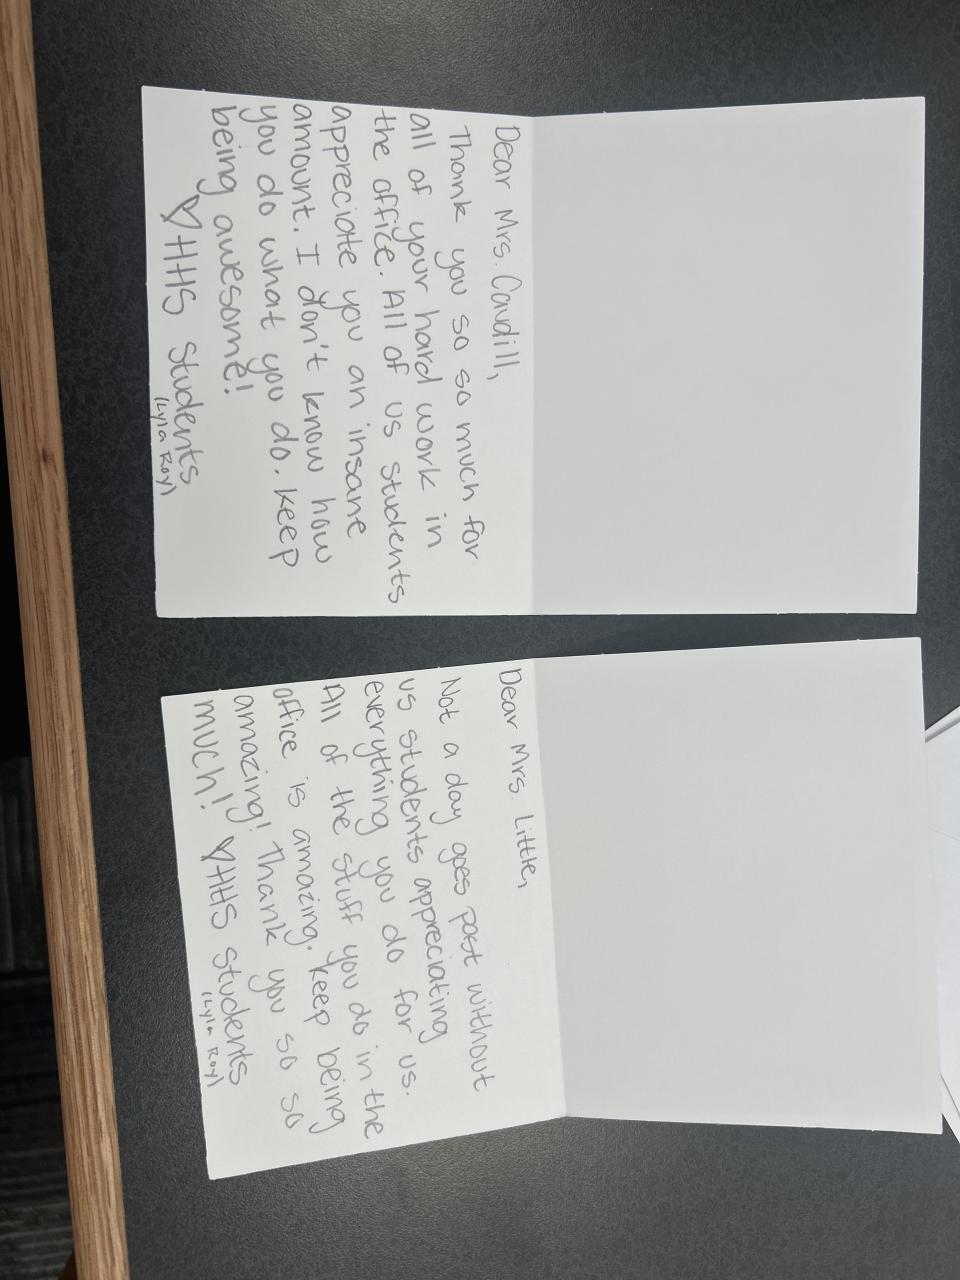 Dear Mrs. Caudill,
Thank you so so much for
all of your hard work in
the office. All of us students
appreciate you an insane
amount. I don't know how
you do what you do. keep
being awesome!
♡HHS Students
(Lyla Roy)
Dear Mrs. Little,
Not a day goes past without
us students appreciating
everything you do for us.
All of the stuff you do in the
office is amazing. keep being
amazing! Thank you so so
much! ♡HHS Students
(Lyla Roy)